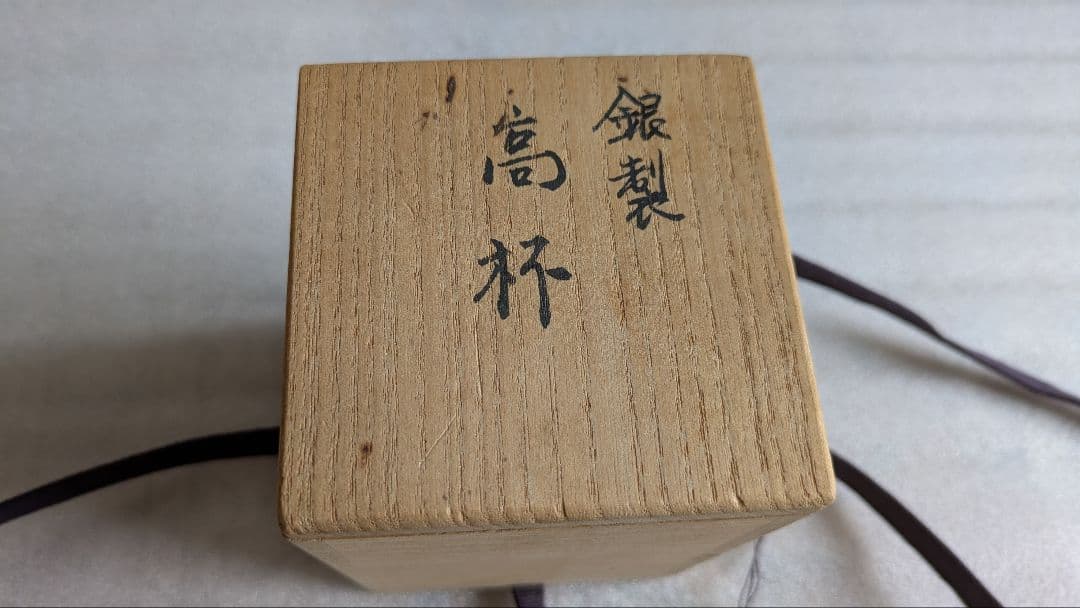 銀製
高杯